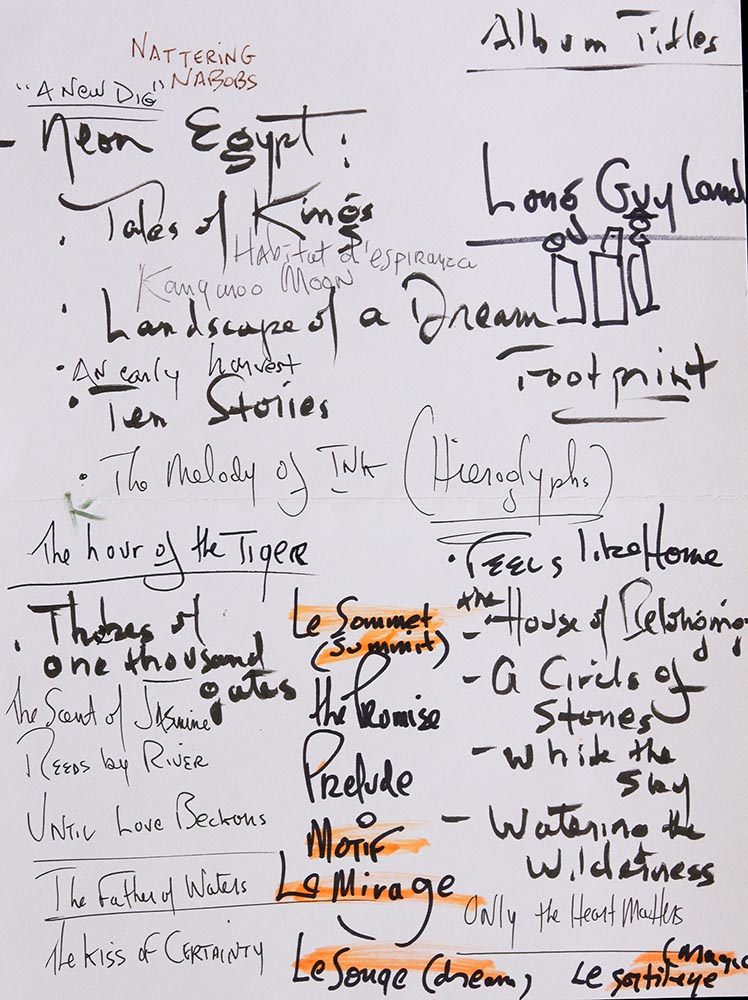 Album Titles
NATTERING
NABOBS
"A NEW DIG"
- Neon Egypt:
Long Guyland
. Tales of Kings
Habitat d'espiranza
Kangaroo Moon
. Landscape of a Dream
Footprint
. AN early harvest
. Ten Stories
. The Melody of INK (Hieroglyphs)
K
The hour of the TIGER
. Thebes of
one thousand
gates
The Scent of Jasmine
REEDS by RIVER
UNTIL Love Beckons
The Father of Waters
The Kiss of CERTAINTY
Le Sommet
(Summit)
the Promise
Prelude
Motif
Le Mirage
Le Songe (dream)
. FEELS like Home
- the House of Belonging
- A Circle of
Stones
- While the
Sky
- Watering the
Wilderness
Only the Heart Matters
(Magic
Le sortilege